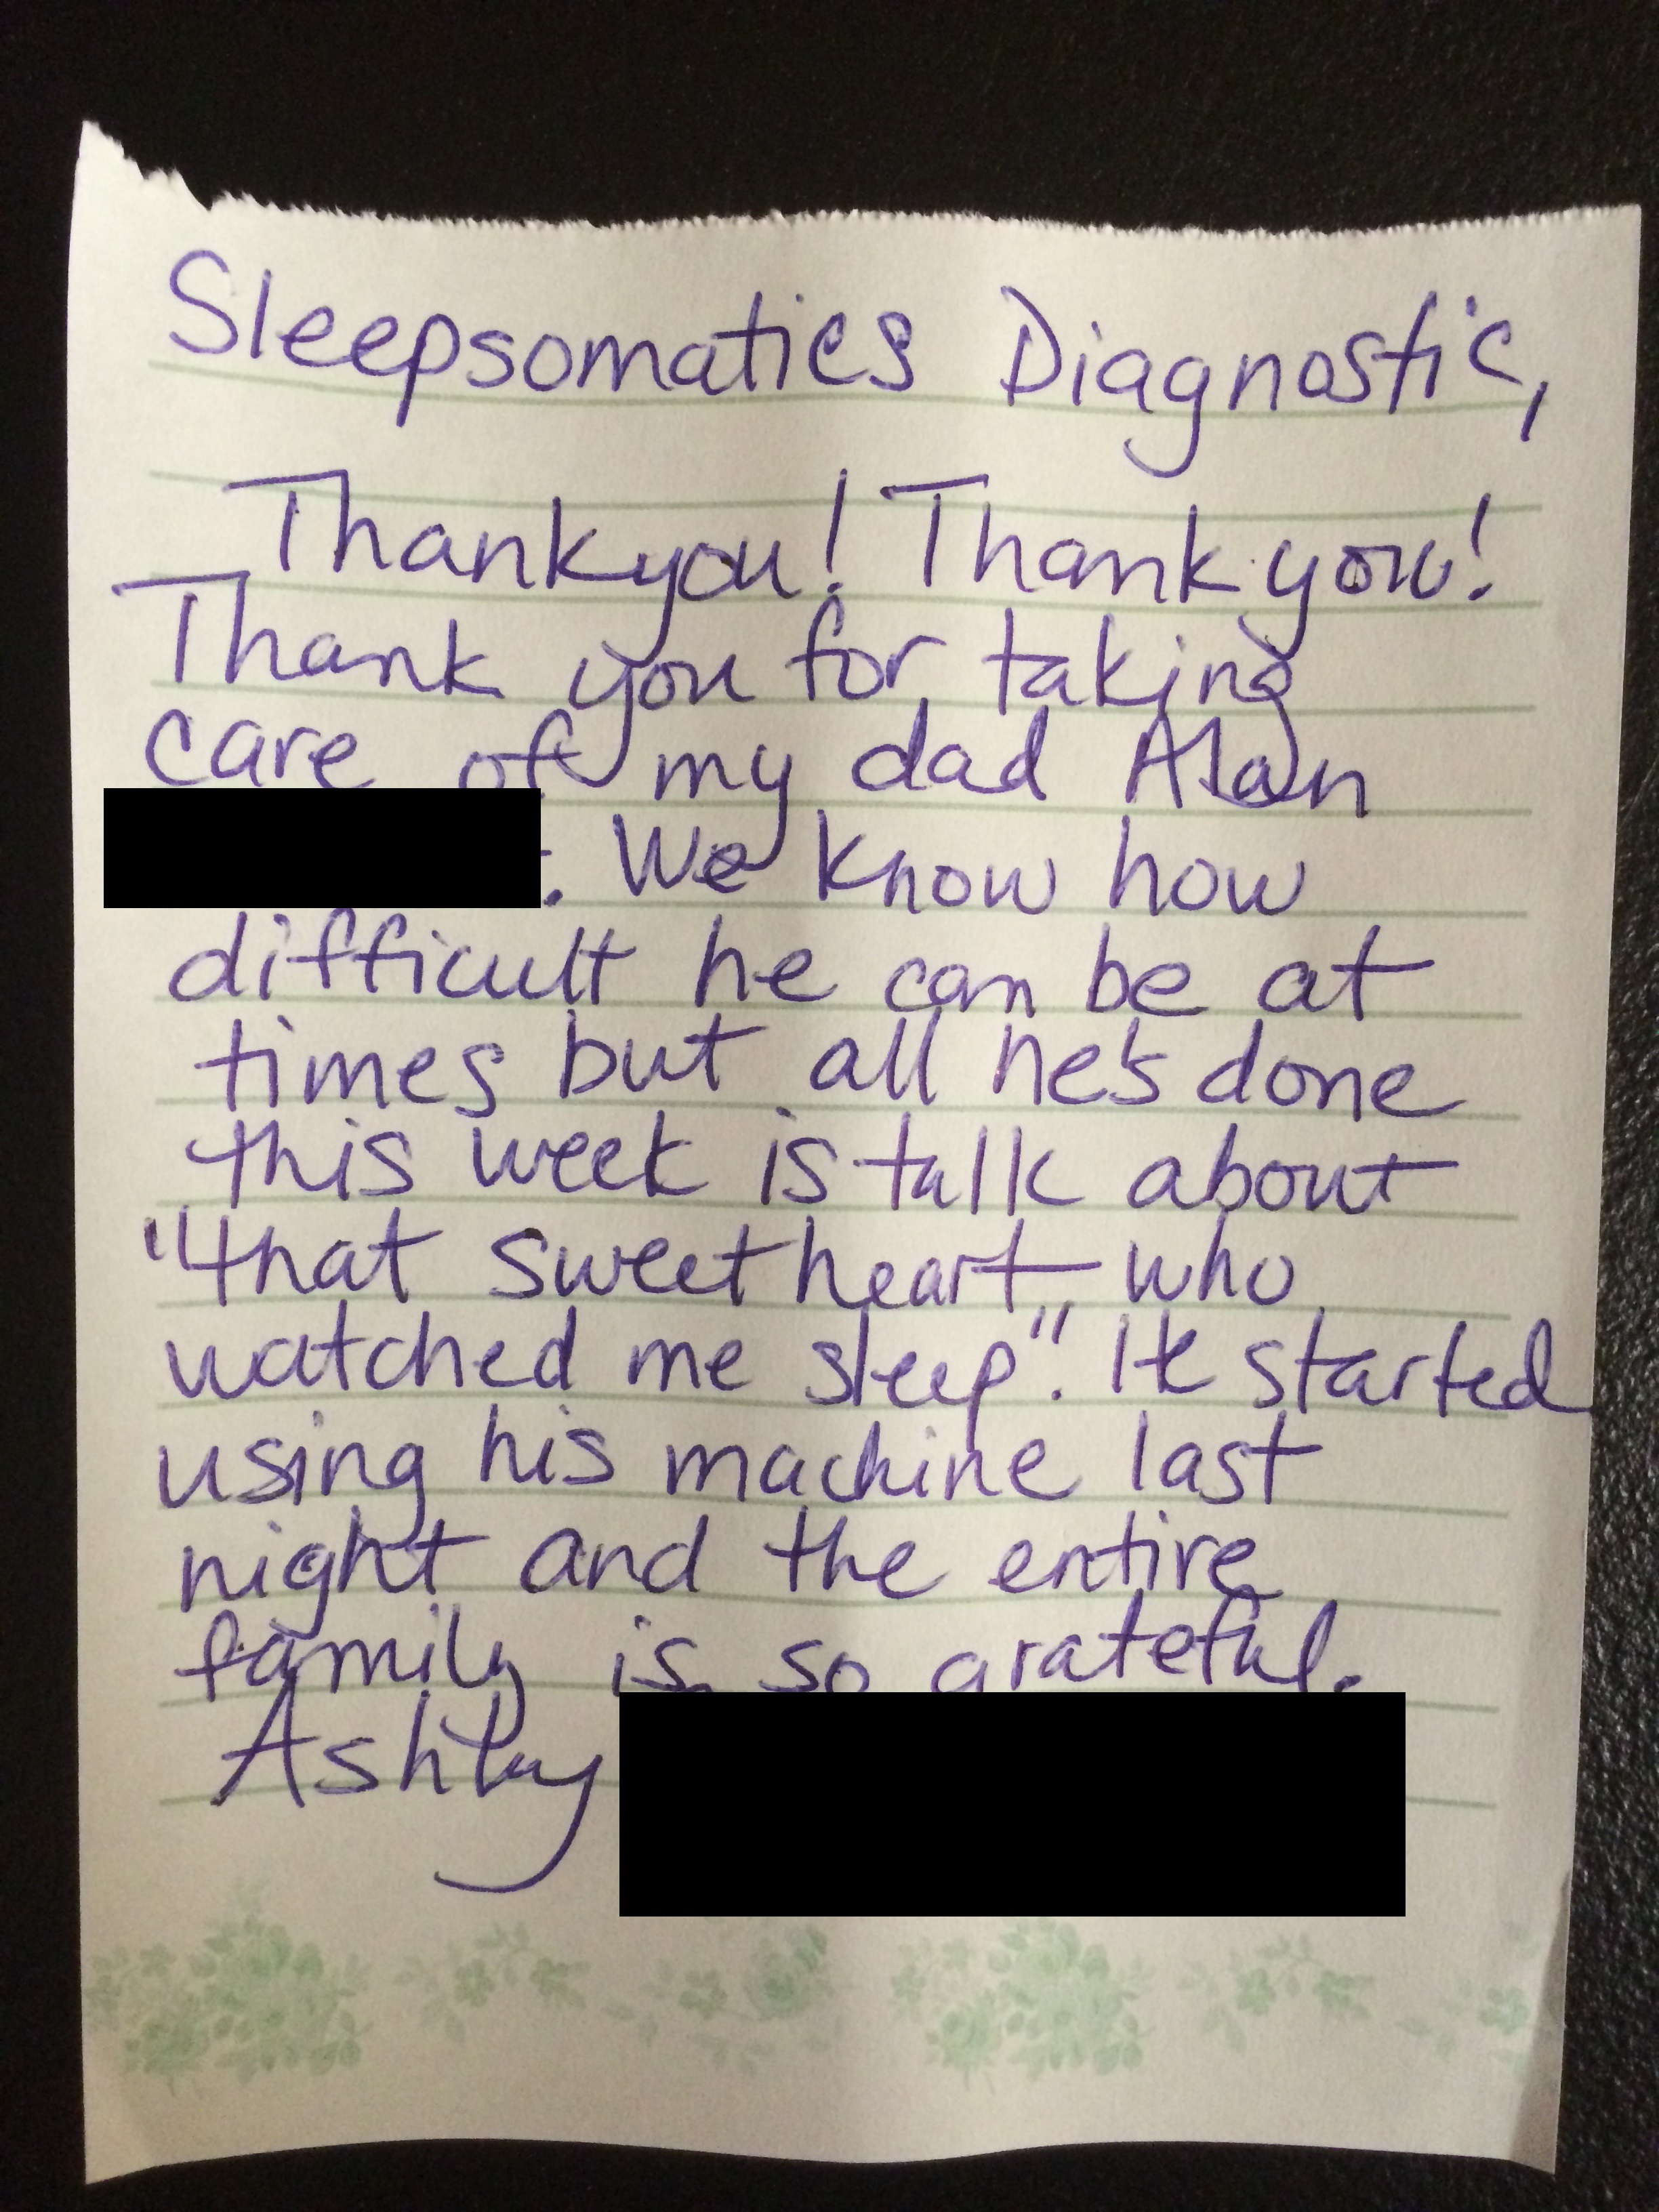 Sleepsomatics Diagnostic,
Thank you! Thank you!
Thank you for taking
care of my dad Alan
. We know how
difficult he can be at
times but all he's done
this week is talk about
"that sweetheart who
watched me sleep". He started
using his machine last
night and the entire
family is so grateful.
Ashley